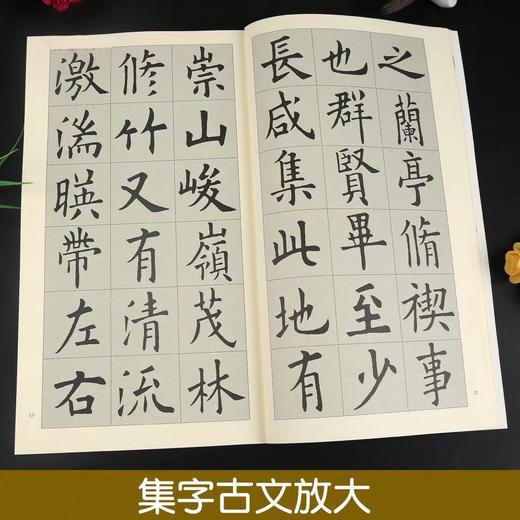 之蘭亭脩禊事
也群賢畢至少
長咸集此地有
12
崇山峻嶺茂林
修竹又有清流
激湍暎帶左右
13
集字古文放大